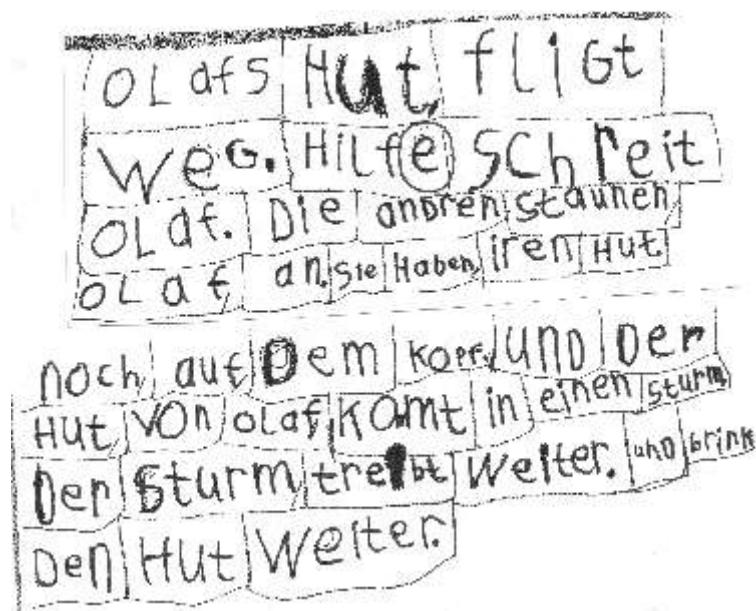 OLafS Hut fLiGt
WeG. HiLfe SCHreit
OLaf. Die anDren staunen
OLaf an. Sie Haben iren Hut
noch auf Dem Kopf. UND Der
Hut VOn OLaf Komt in einen Sturm.
Der Sturm treibt Weiter. unD brinkt
Den Hut Weiter.